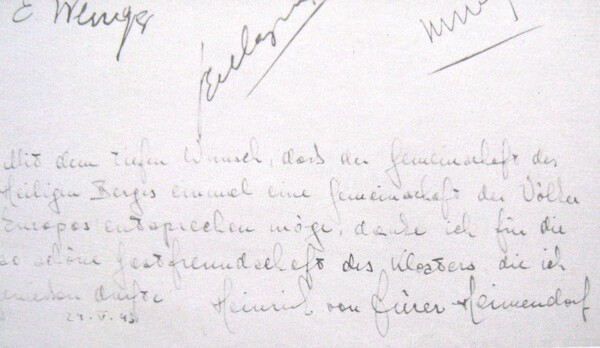 E Weniger
Mit dem tiefen Wunsch, dass der Gemeinschaft des
Heiligen Berges einmal eine Gemeinschaft der Völker
Europas entsprechen möge, danke ich für die
so schöne Gastfreundschaft des Klosters die ich
durfte Heinrich von Fürer-Heimendorf